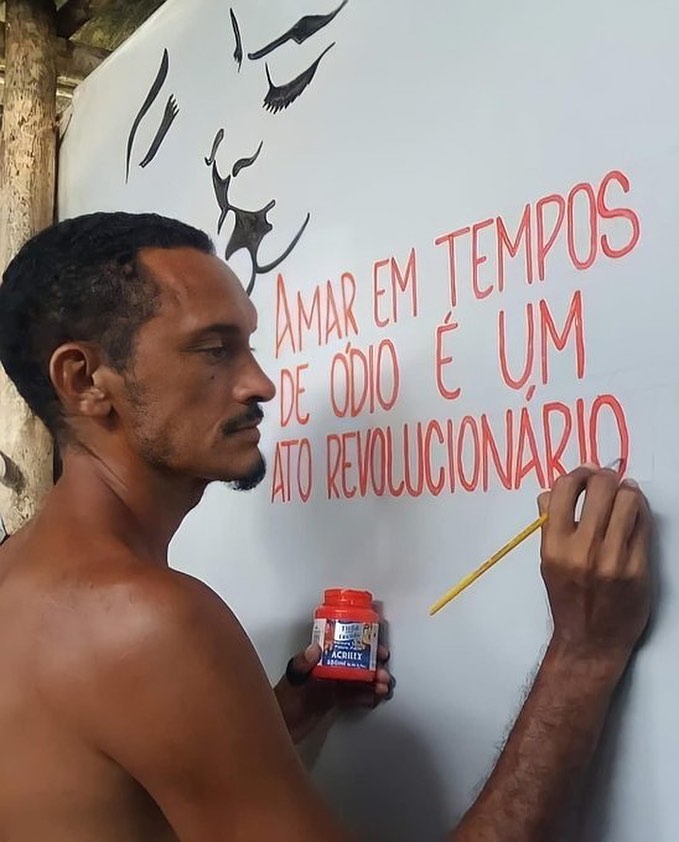 AMAR EM TEMPOS
DE ÓDIO É UM
ATO REVOLUCIONÁRIO
ACRILEX